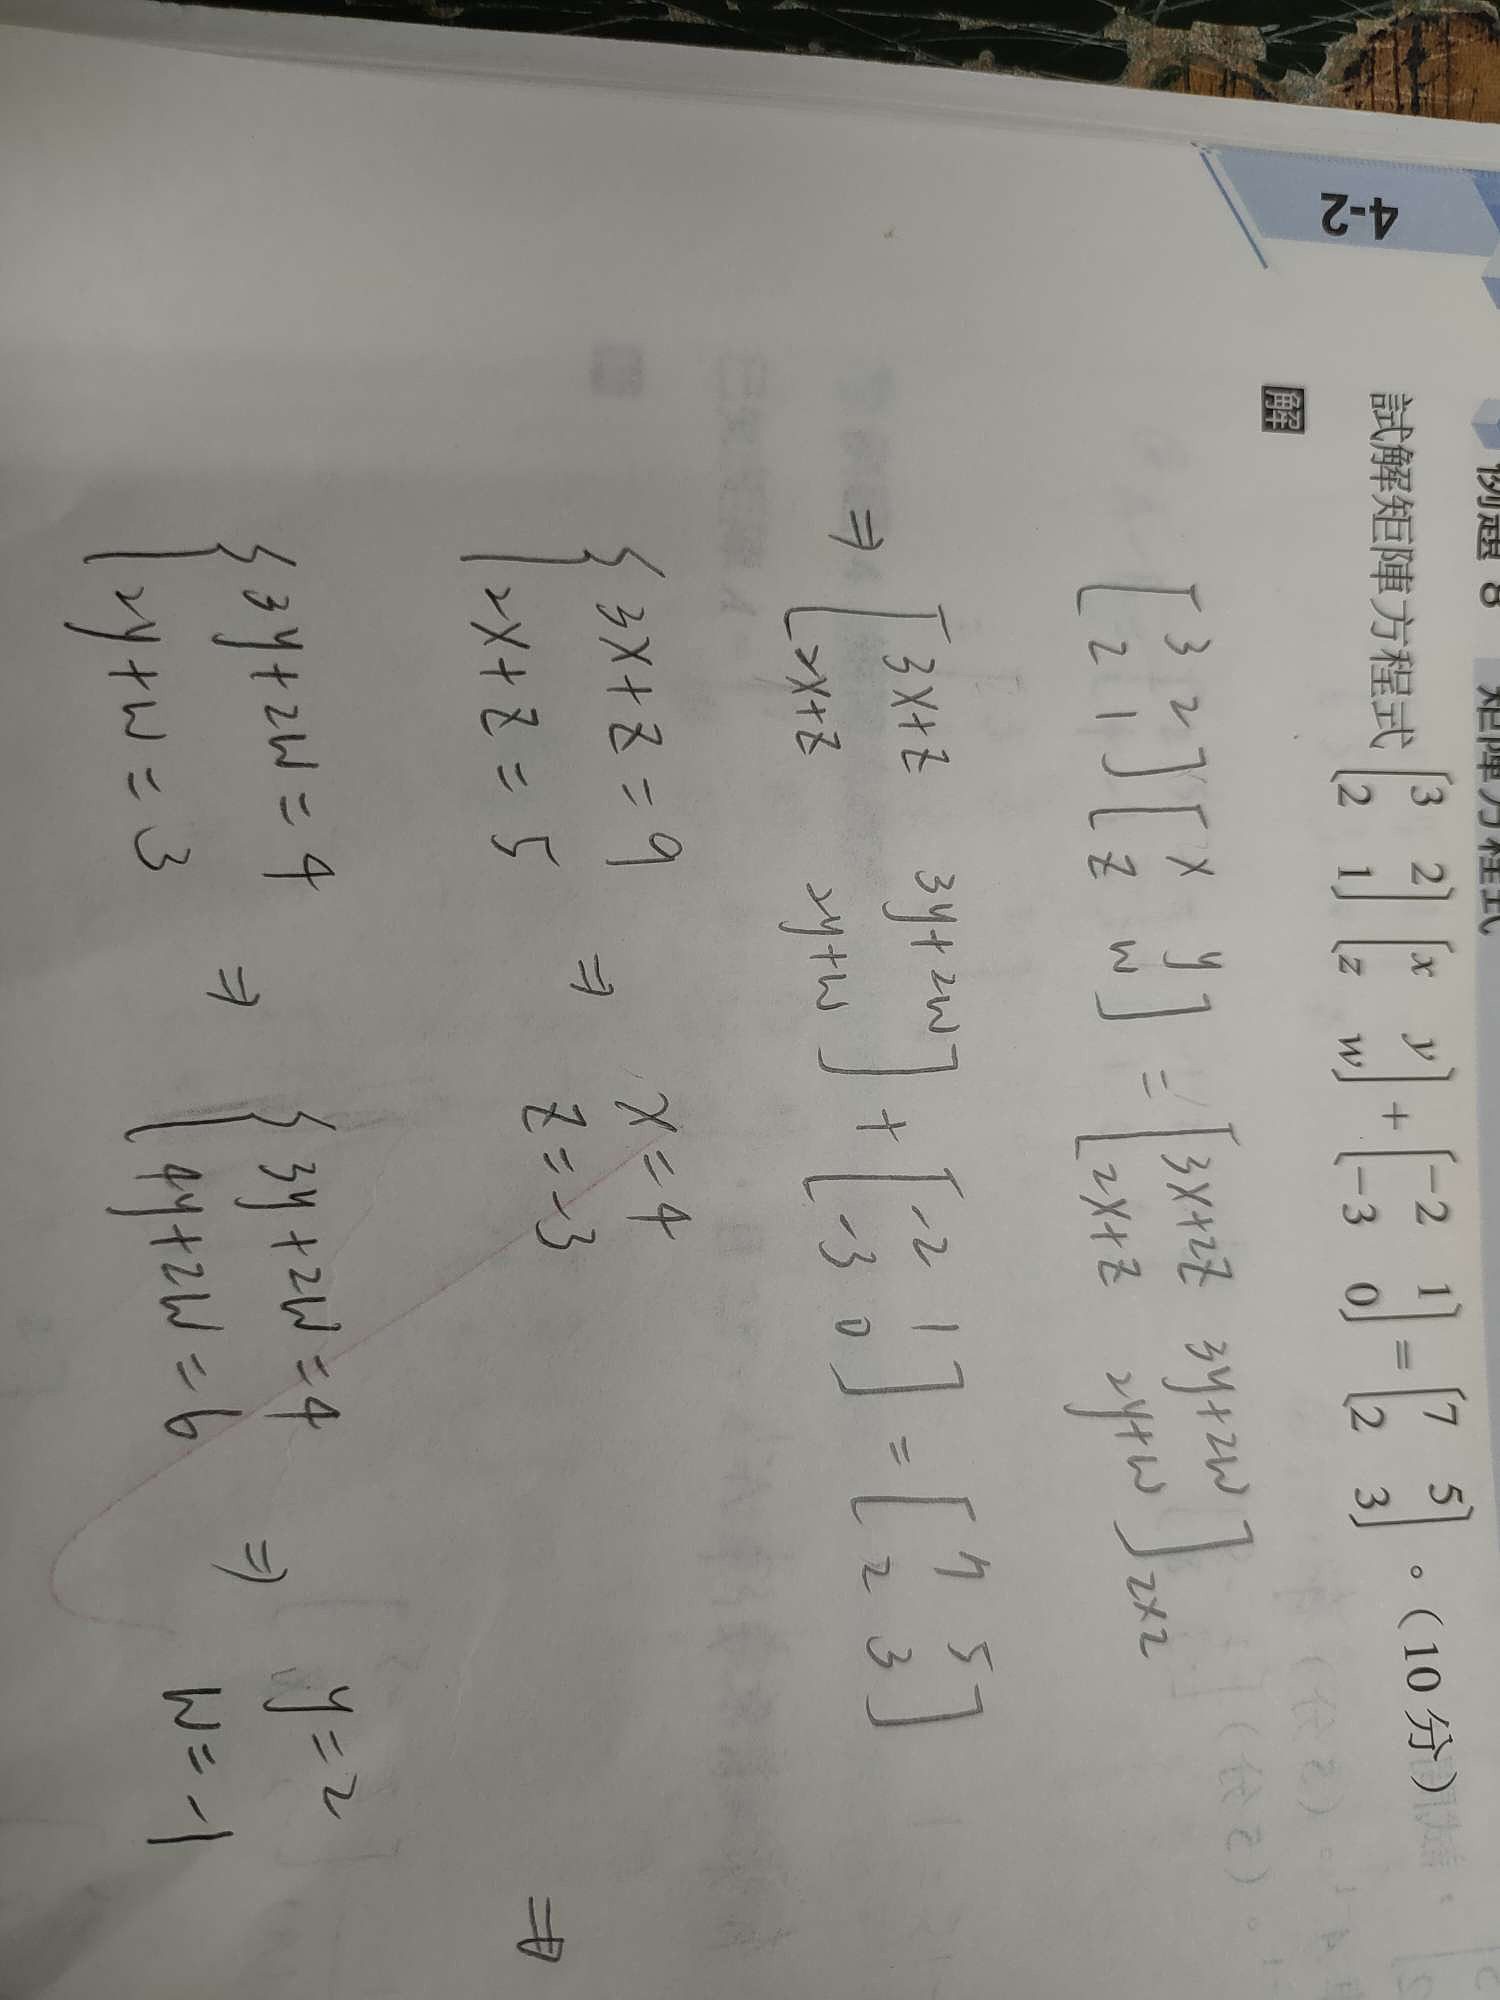 4-2
例題 8 矩陣方程式
試解矩陣方程式 [3 2; 2 1] [x y; z w] + [-2 1; -3 0] = [7 5; 2 3]。(10分)
解
[3 2; 2 1] [x y; z w] = [3x+2z 3y+2w; 2x+z 2y+w] 2×2
⇒ [3x+z 3y+2w; 2x+z 2y+w] + [-2 1; -3 0] = [7 5; 2 3]
{3x+z=9
2x+z=5 ⇒ x=4
z=-3
{3y+2w=4
2y+w=3 ⇒ {3y+2w=4
4y+2w=6 ⇒ y=2
w=-1
⇒